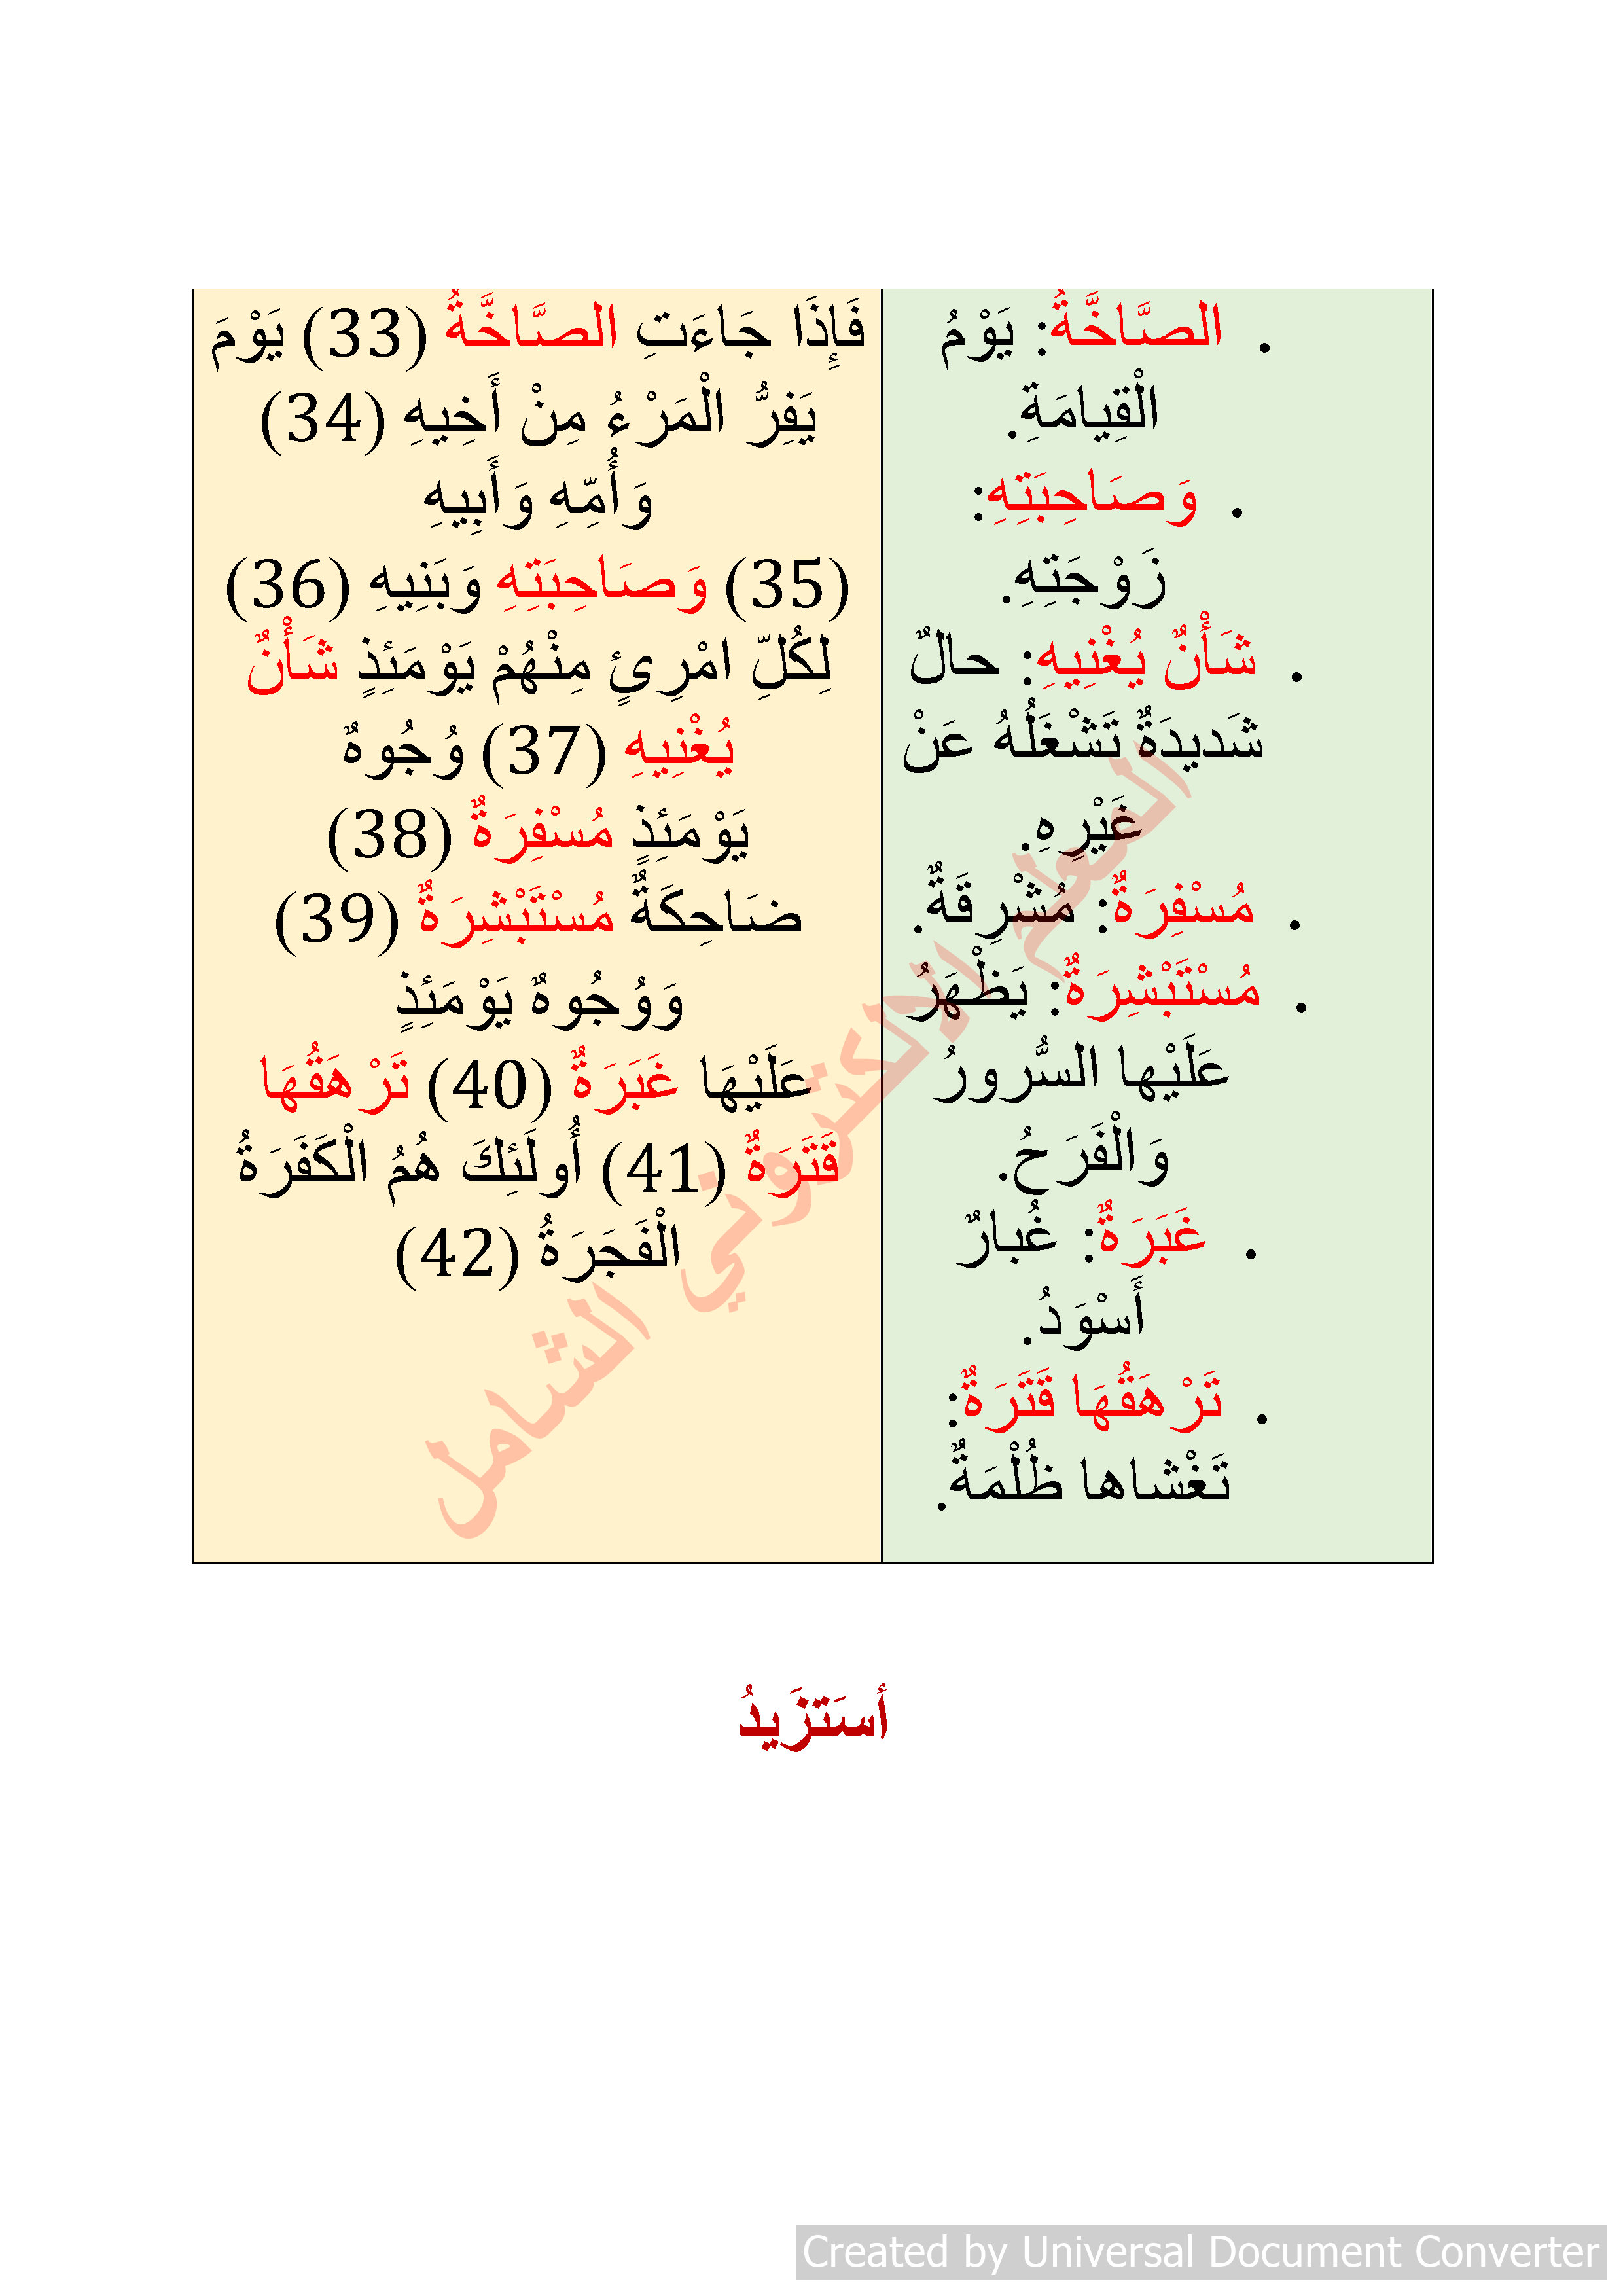 . الصَّاخَّةُ: يَوْمُ
الْقِيامَةِ.
. وَصَاحِبَتِهِ:
زَوْجَتِهِ.
. شَأْنٌ يُغْنِيهِ: حالٌ
شَديدَةٌ تَشْغَلُهُ عَنْ
غَيْرِهِ.
. مُسْفِرَةٌ: مُشْرِقَةٌ.
. مُسْتَبْشِرَةٌ: يَظْهَرُ
عَلَيْها السُّرورُ
وَالْفَرَحُ.
. غَبَرَةٌ: غُبارٌ
أَسْوَدُ.
. تَرْهَقُهَا قَتَرَةٌ:
تَغْشاها ظُلْمَةٌ.
فَإِذَا جَاءَتِ الصَّاخَّةُ (33) يَوْمَ
يَفِرُّ الْمَرْءُ مِنْ أَخِيهِ (34)
وَأُمِّهِ وَأَبِيهِ
(35) وَصَاحِبَتِهِ وَبَنِيهِ (36)
لِكُلِّ امْرِئٍ مِنْهُمْ يَوْمَئِذٍ شَأْنٌ
يُغْنِيهِ (37) وُجُوهٌ
يَوْمَئِذٍ مُسْفِرَةٌ (38)
ضَاحِكَةٌ مُسْتَبْشِرَةٌ (39)
وَوُجُوهٌ يَوْمَئِذٍ
عَلَيْهَا غَبَرَةٌ (40) تَرْهَقُهَا
قَتَرَةٌ (41) أُولَئِكَ هُمُ الْكَفَرَةُ
الْفَجَرَةُ (42)
المعلم الالكتروني الشامل
أستَزَيدُ
Created by Universal Document Converter